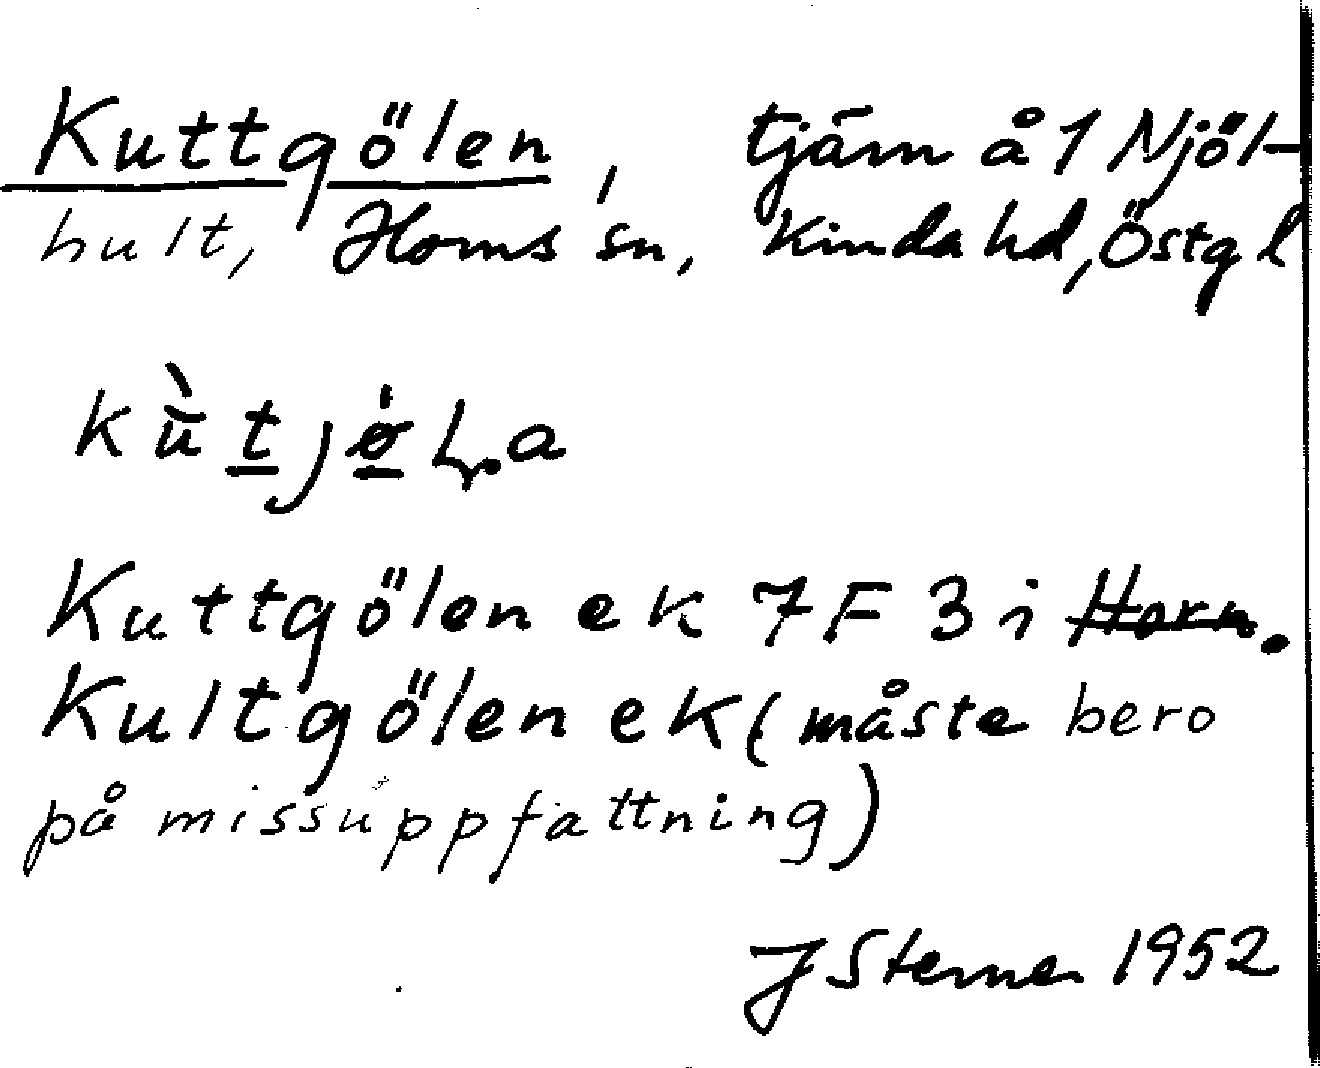 Kuttgölen, tjärn å 1 Njöl-
hult, Horns sn, Kinda hd, Östgl
Kuttgölen ek 7F3 i Horn.
Kultgölen ek (måste bero
på missuppfattning)
J Sterner 1952